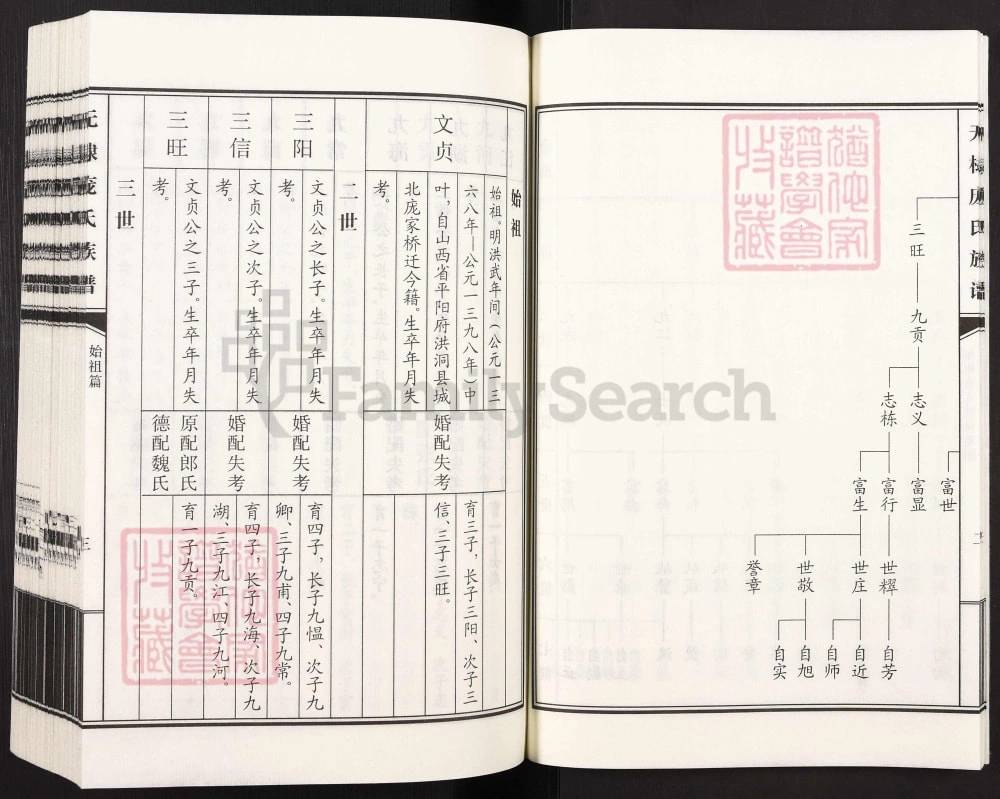 三旺
九贡
志义
志栋
富世
富显
富行
富生
世穋
世庄
世敬
誉章
自芳
自近
自师
自旭
自实
二
始祖
文贞
始祖。明洪武年间(公元一三
六八年—公元一三九八年)中
叶,自山西省平阳府洪洞县城
北庞家桥迁今籍。生卒年月失
考。
婚配失考
育三子,长子三阳、次子三
信、三子三旺。
二世
三阳
文贞公之长子。生卒年月失
考。
婚配失考
育四子,长子九愠、次子九
卿、三子九甫、四子九常。
三信
文贞公之次子。生卒年月失
考。
婚配失考
育四子,长子九海、次子九
湖、三子九江、四子九河。
三旺
文贞公之三子。生卒年月失
考。
原配郎氏
德配魏氏
育一子九贡。
三世
无棣庞氏族谱
始祖篇
三
FamilySearch